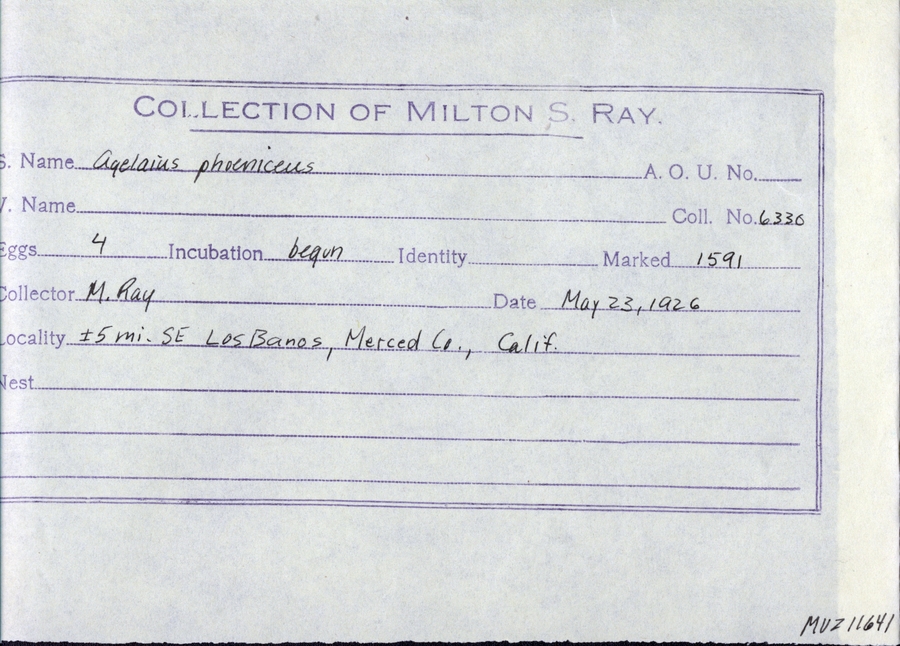 COLLECTION OF MILTON S. RAY.
S. Name Agelaius phoeniceus A. O. U. No.
V. Name Coll. No. 6330
Eggs 4 Incubation begun Identity Marked 1591
Collector M. Ray Date May 23, 1926
Locality ±5 mi. SE Los Banos, Merced Co., Calif.
Nest
MVZ 11641